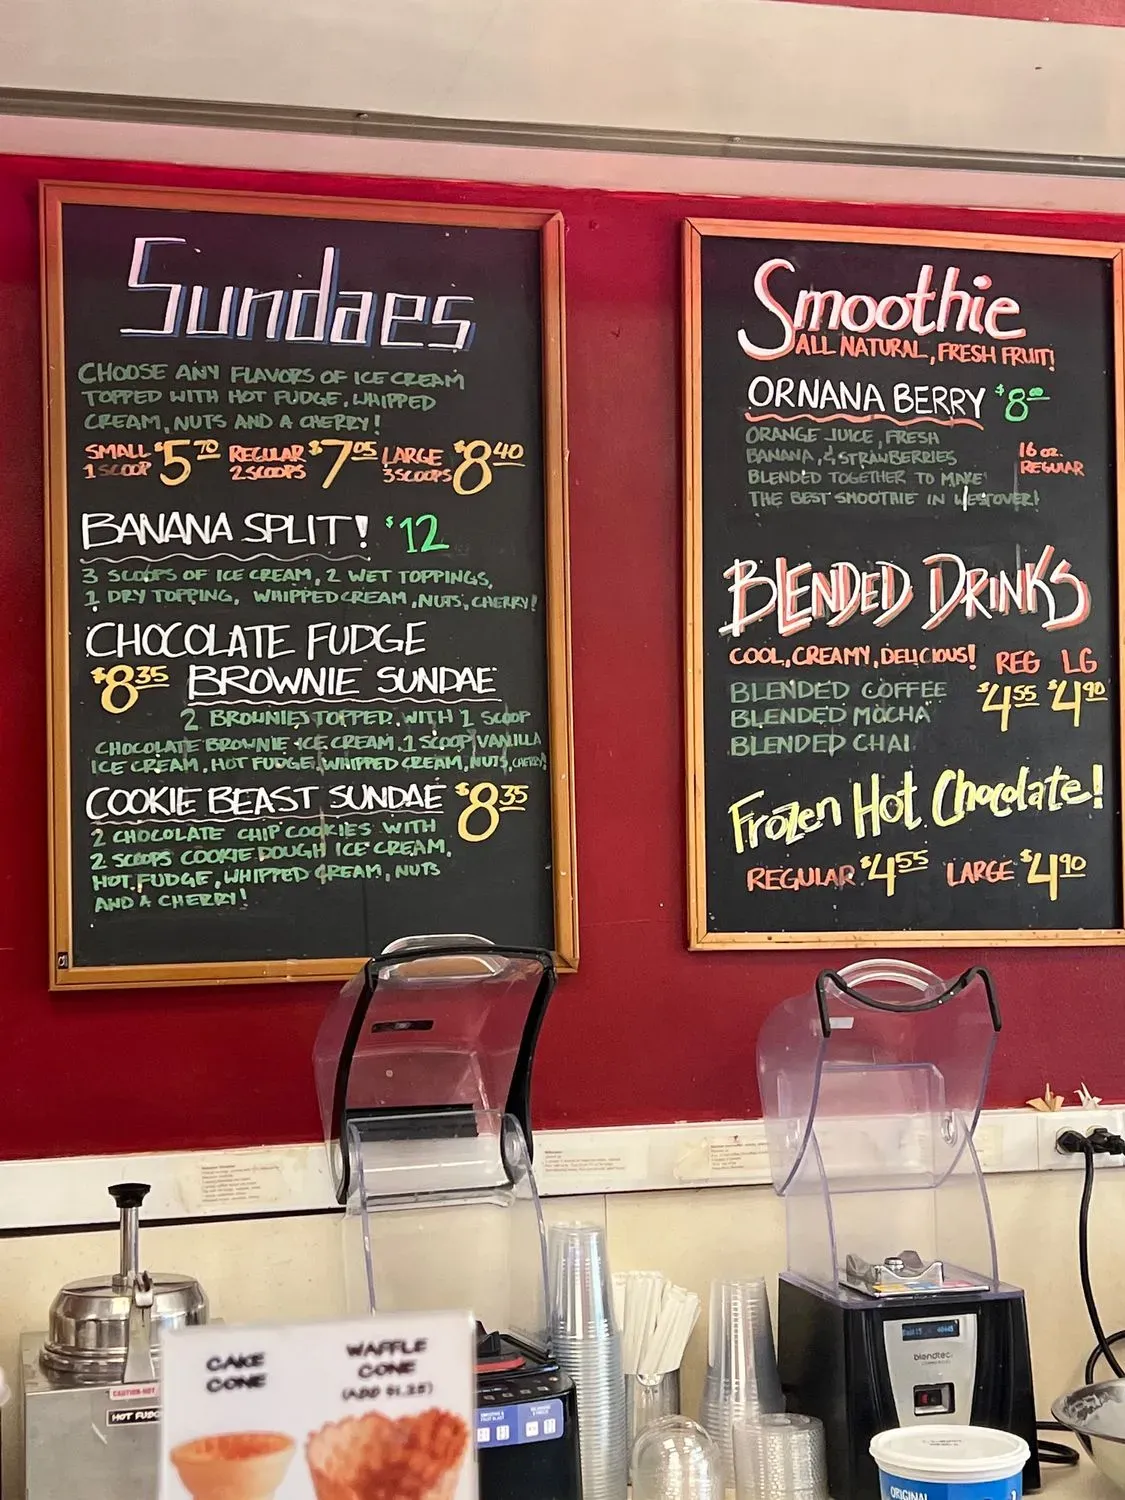 Sundaes
CHOOSE ANY FLAVORS OF ICE CREAM
TOPPED WITH HOT FUDGE, WHIPPED
CREAM, NUTS AND A CHERRY!
SMALL $5.70 REGULAR $7.05 LARGE $8.40
1 SCOOP 2 SCOOPS 3 SCOOPS
BANANA SPLIT! $12
3 SCOOPS OF ICE CREAM, 2 WET TOPPINGS,
1 DRY TOPPING, WHIPPED CREAM, NUTS, CHERRY!
CHOCOLATE FUDGE
$8.35 BROWNIE SUNDAE
2 BROWNIES TOPPED WITH 1 SCOOP
CHOCOLATE BROWNIE ICE CREAM, 1 SCOOP VANILLA
ICE CREAM, HOT FUDGE, WHIPPED CREAM, NUTS, CHERRY!
COOKIE BEAST SUNDAE $8.35
2 CHOCOLATE CHIP COOKIES WITH
2 SCOOPS COOKIE DOUGH ICE CREAM,
HOT FUDGE, WHIPPED CREAM, NUTS
AND A CHERRY!
Smoothie
ALL NATURAL, FRESH FRUIT!
ORNANA BERRY $8.00
ORANGE JUICE, FRESH
BANANA, & STRAWBERRIES
BLENDED TOGETHER TO MAKE
THE BEST SMOOTHIE IN WESTOVER!
16 oz.
REGULAR
BLENDED DRINKS
COOL, CREAMY, DELICIOUS! REG LG
BLENDED COFFEE $4.55 $4.90
BLENDED MOCHA
BLENDED CHAI
Frozen Hot Chocolate!
REGULAR $4.55 LARGE $4.90
CAKE
CONE
WAFFLE
CONE
(ADD $1.25)
CAUTION-HOT
HOT FUDG
blendtec
ORIGINAL